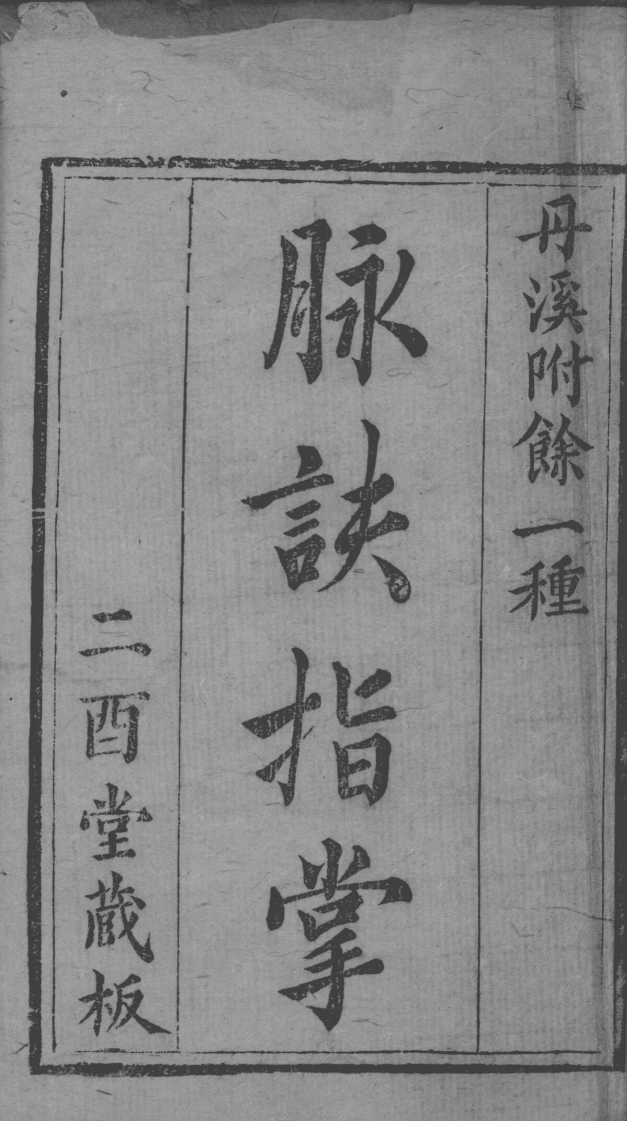 丹溪附餘一種
脉訣指掌
二酉堂蔵板